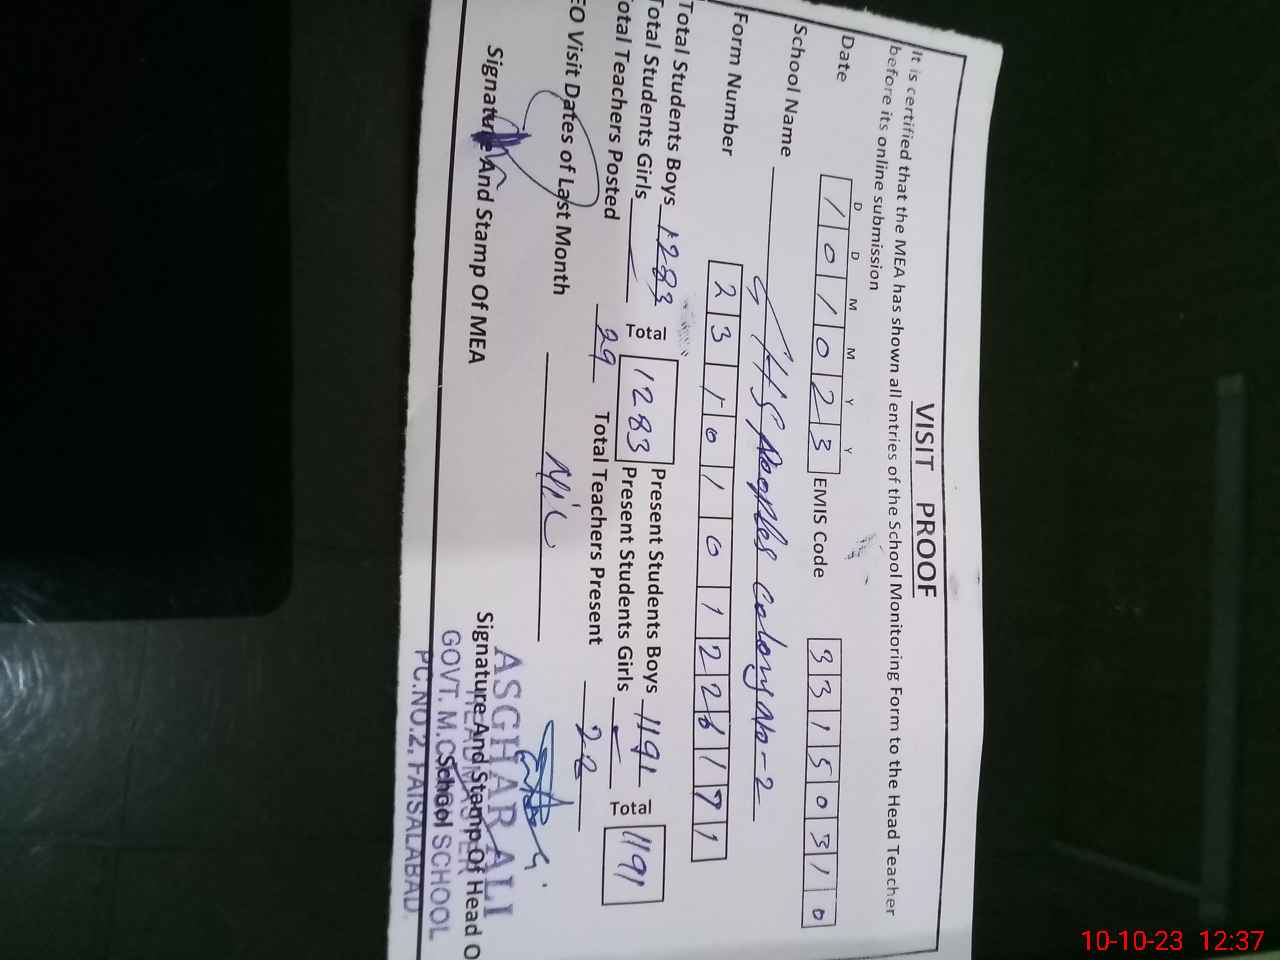 VISIT PROOF
It is certified that the MEA has shown all entries of the School Monitoring Form to the Head Teacher
before its online submission
D D M M Y Y
Date 1 0 1 0 2 3 EMIS Code 3 3 1 5 0 3 1 0
School Name GHS Peoples Colony No-2
Form Number 2 3 1 0 1 0 1 2 2 6 1 7 1
Total Students Boys 1283 Present Students Boys 1191
Total 1283 Total 1191
Total Students Girls — Present Students Girls —
otal Teachers Posted 29 Total Teachers Present 28
EO Visit Dates of Last Month Nil
Signature And Stamp Of MEA Signature And Stamp Of Head O
School
ASGHAR ALI
HEADMASTER
GOVT. M.C SCHOOL
PC.NO.2, FAISALABAD.
10-10-23 12:37